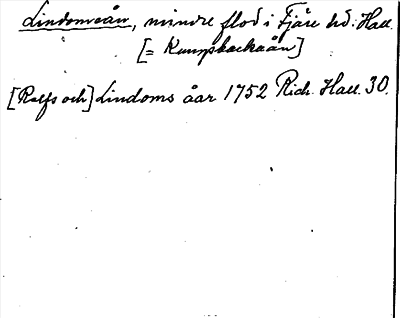 Lindomeån, mindre flod i Fjäre hd: Hall.
[= Kungsbackaån]
[Rolfs och] Lindoms åar 1752 Rich. Hall. 30.